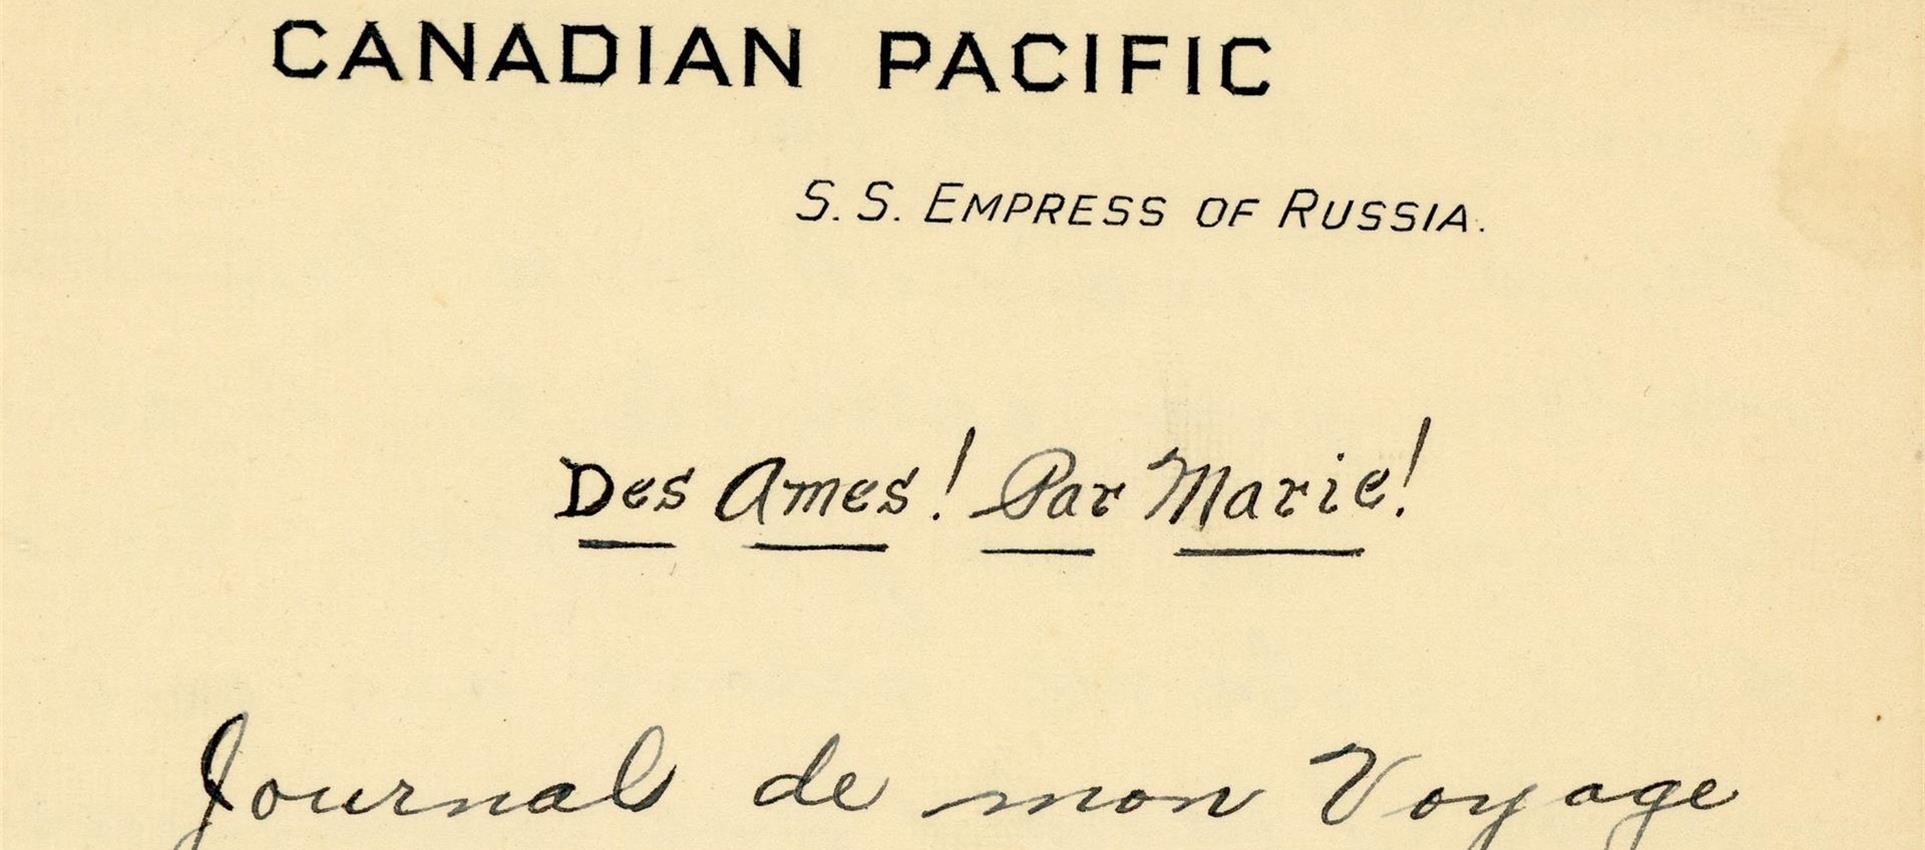 CANADIAN PACIFIC
S. S. EMPRESS OF RUSSIA.
Des Ames! Par Marie!
Journal de mon Voyage